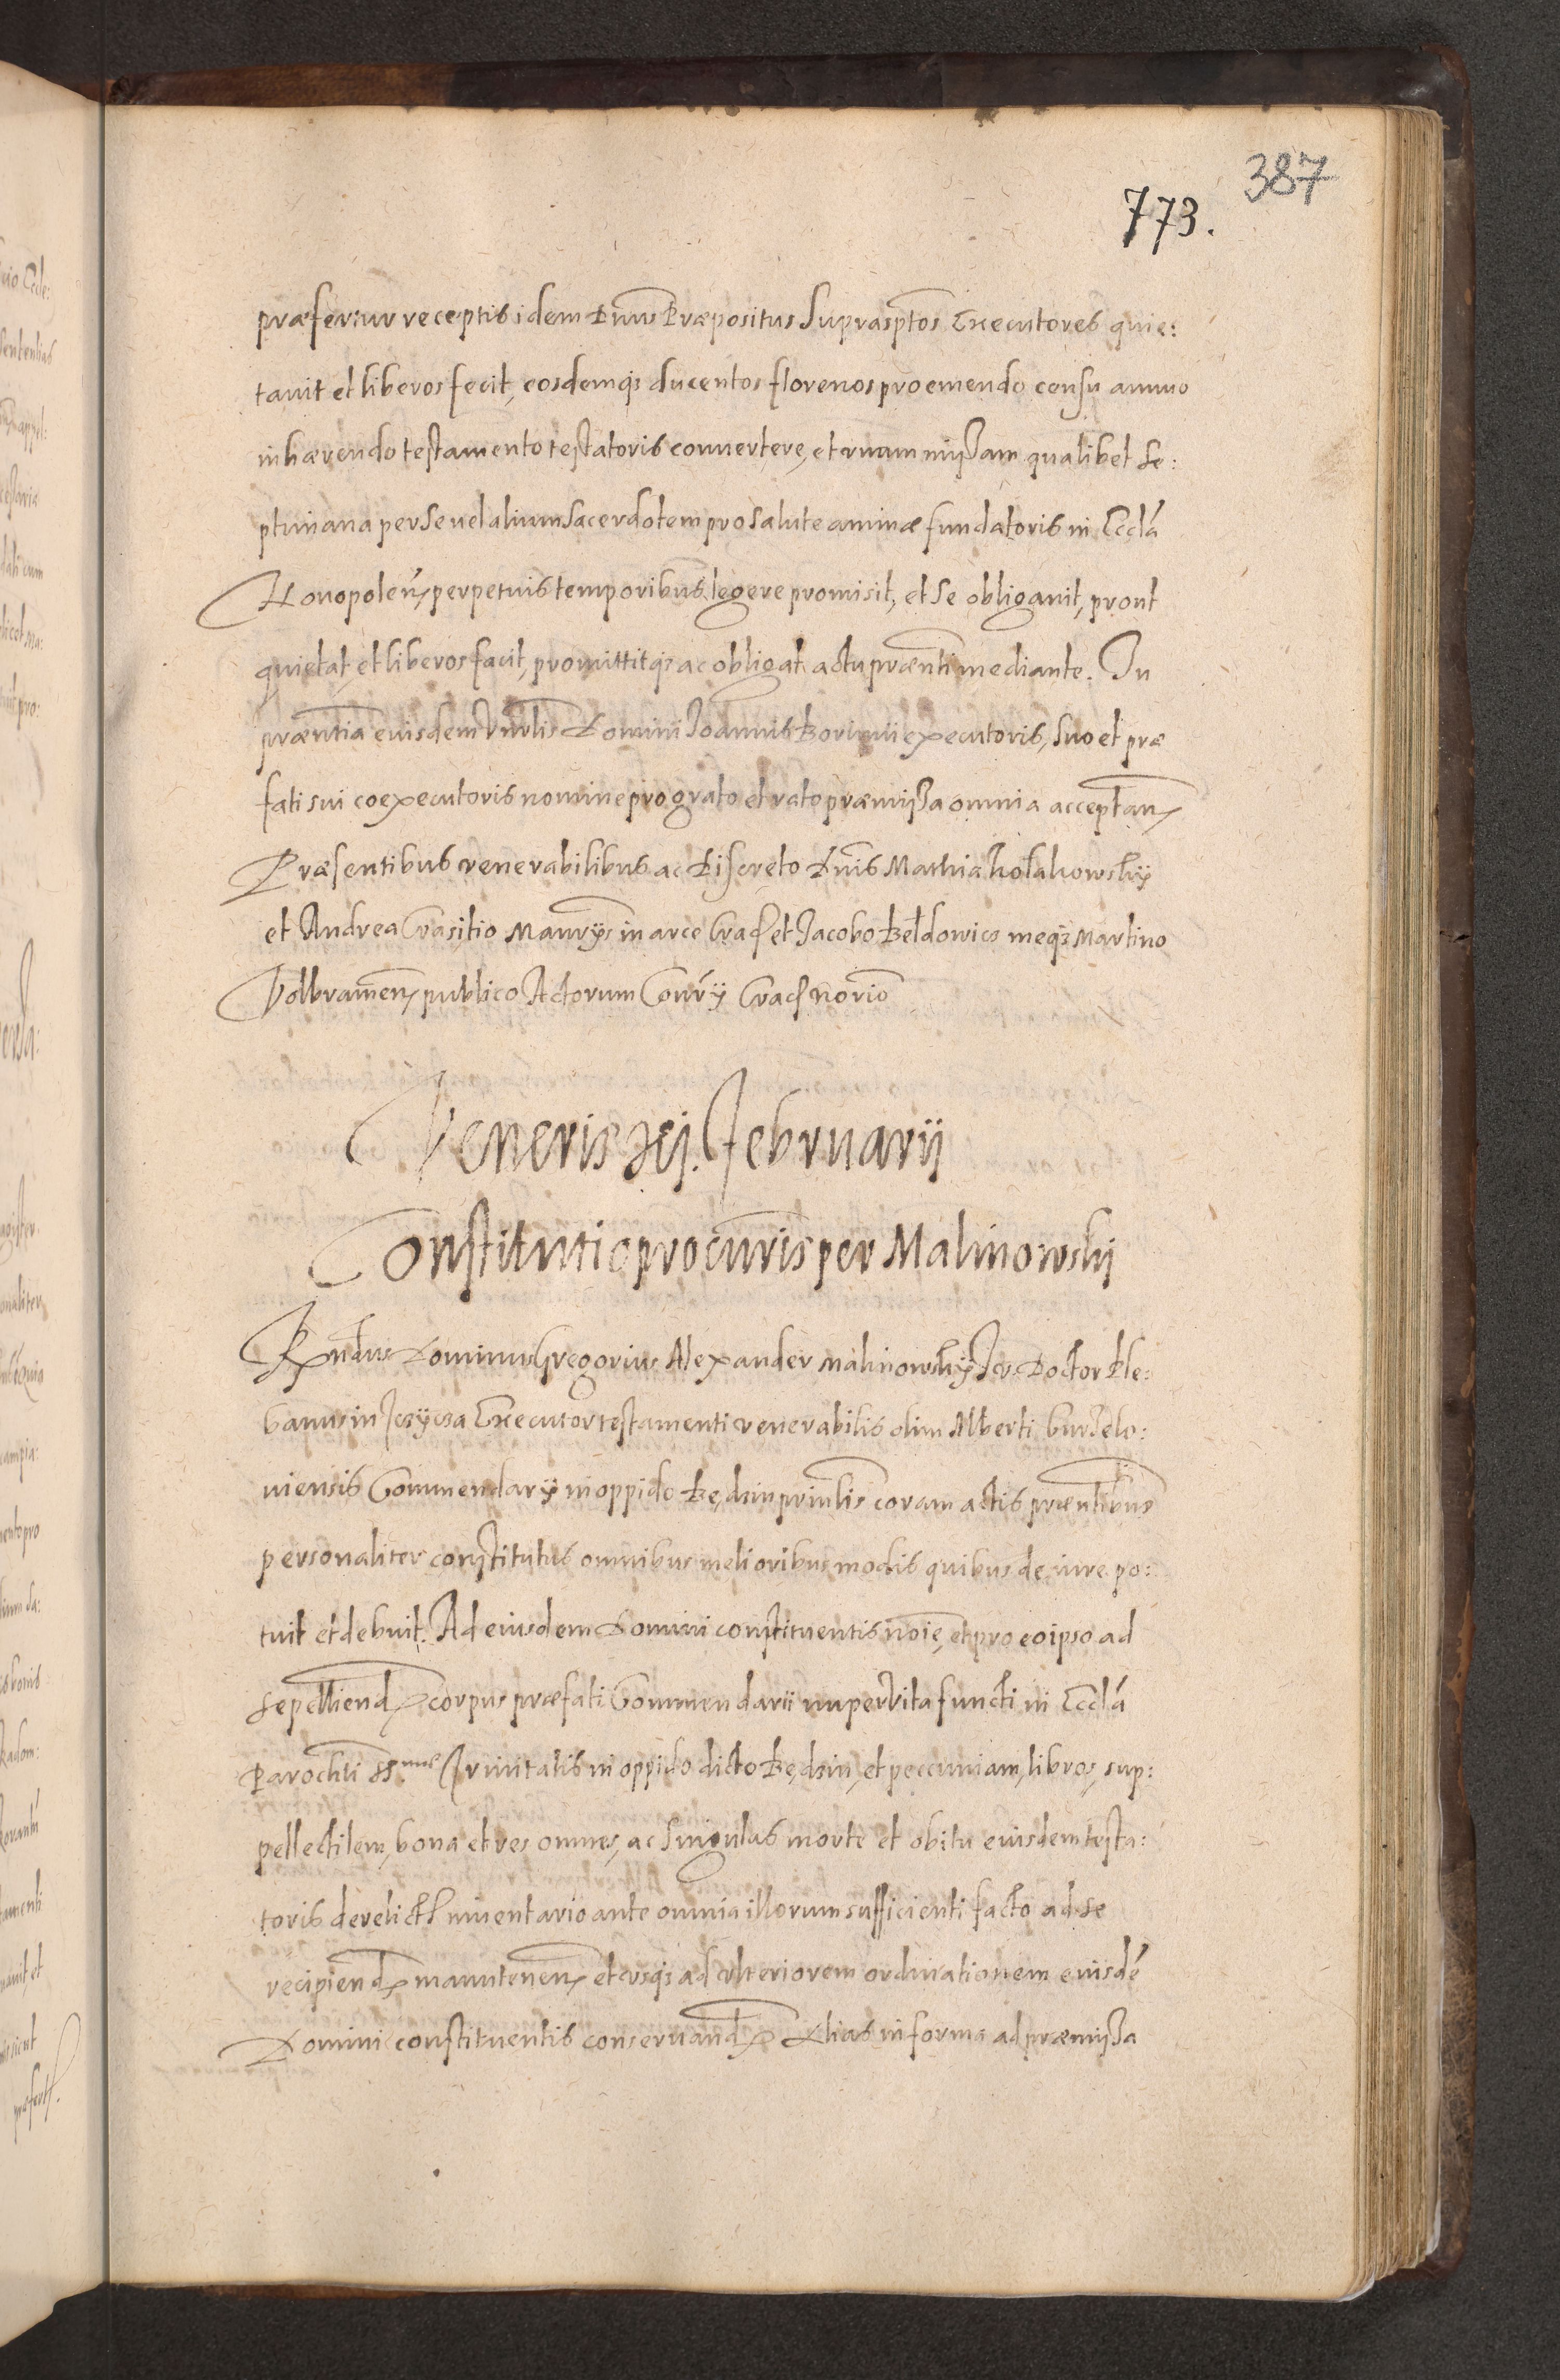 387
773.
præfertur receptis idem Dnus Præpositus Suprasptos Executores quie:
tavit et liberos fecit, eosdemqs ducentos florenos pro emendo censu annuo
inhærendo testamento testatoris convertere, et unam missam qualibet se:
ptimana per se vel alium Sacerdotem pro salute animæ fundatoris in Eccla
Novopolen perpetuis temporibus legere promisit, et se obligavit, prout
quietat et liberos facit, promittitqs ac obligat actu præsenti mediante. In
præntia eiusdem Vnrlis Domini Joannis Borimii executoris, suo et præ
fati sui coexecutoris nomine pro grato et rato præmissa omnia acceptan
Præsentibus venerabilibus ac Discreto Dnis Mathia
et Andrea Crasitio Manrys in arce Crac et Jacobo Beldowicz meqs Martino
Volbramen publico Actorum Conrij Crac norio
Veneris xij. Februarij
Constitutio procuris per Malinowski
Rndus Dominus Gregorius Alexander Malinowskÿ Jcs. Doctor Ple:
banus in Executor testamenti venerabilis olim Alberti Kurzelo:
viensis Commendarÿ in oppido Będzin prinlis coram actis præntibus
personaliter constitutus omnibus melioribus modis quibus de iure po:
tuit et debuit. Ad eiusdem Domini constituentis noie, et pro eo ipso ad
sepelliend corpus præfati Commendarii nuper vita functi in Eccla
Parochli SS.mae Trinitatis in oppido dicto Będzin, et peccuniam, libros, sup:
pellectilem, bona et res omnes, ac singulas morte et obitu eiusdem testa:
toris derelict inventario ante omnia illorum sufficienti facto ad se
recipiend manutenen et usqs ad ulteriorem ordinationem eiusdē
Domini constituentis conservand Alias in forma ad præmissa